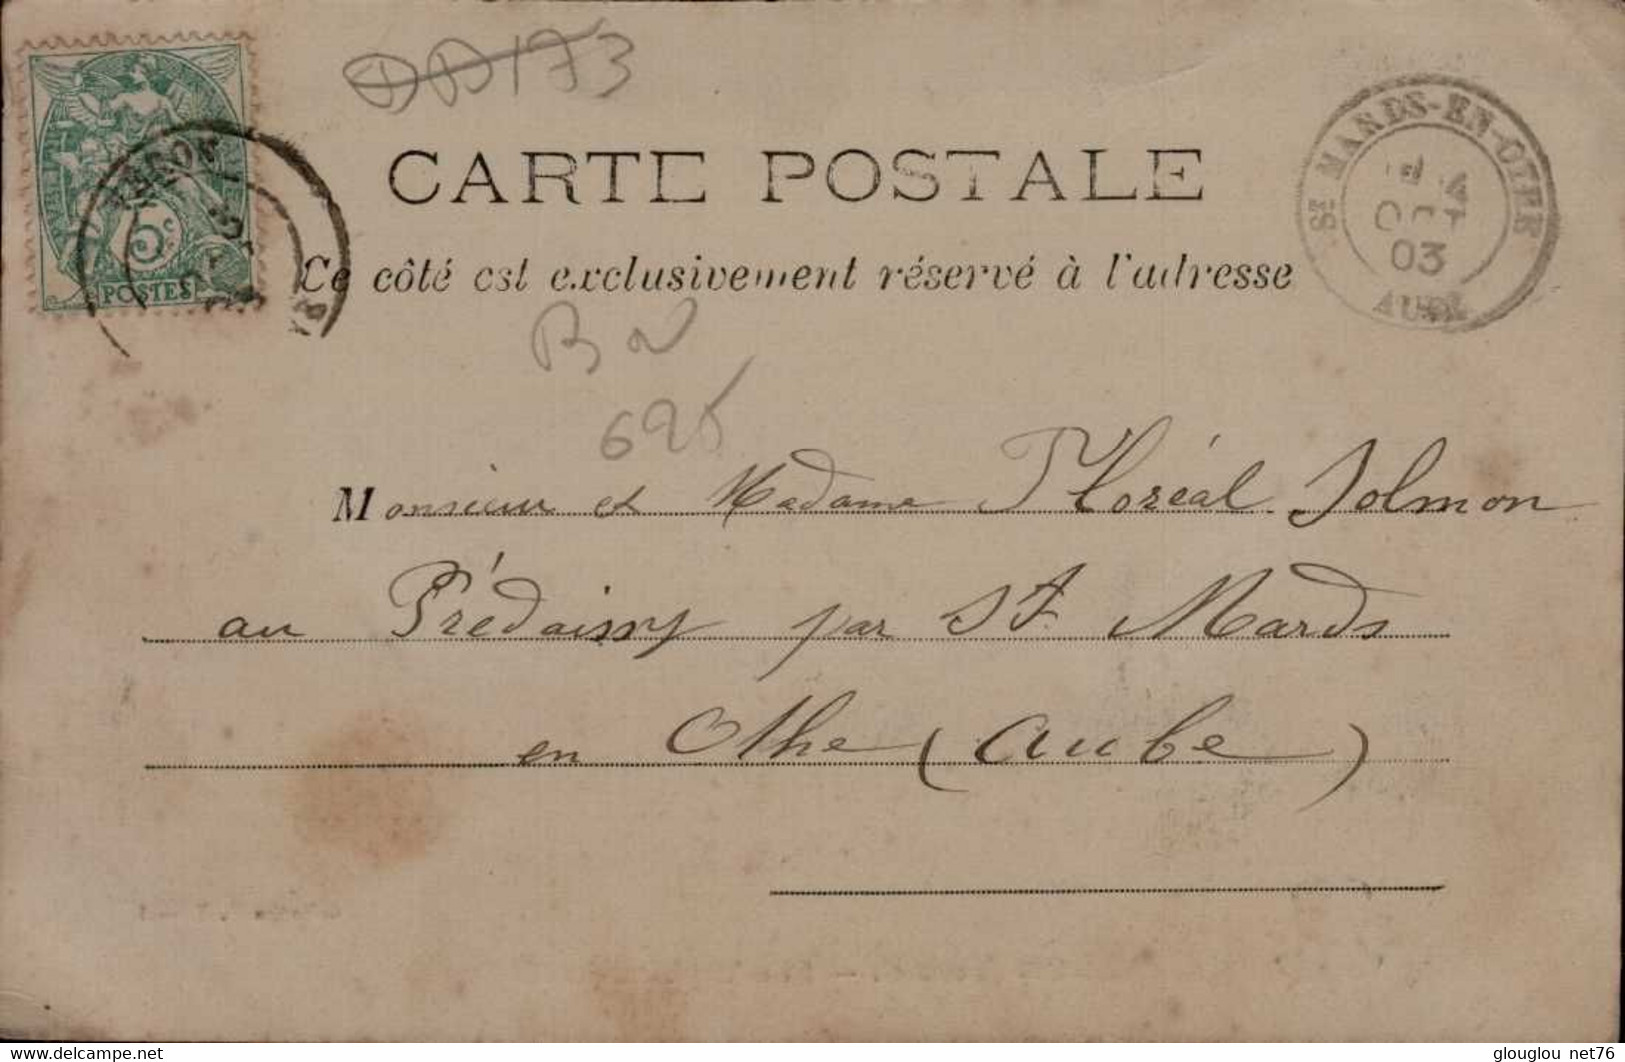 DD173
CARTE POSTALE
Ce côté est exclusivement réservé à l'adresse
ST MARDS-EN-OTHE
OCT
03
AUBE
5c
POSTES
BN
695
Monsieur et Madame Floréal Jolmon
au Prédaissy par St Mards
en Othe (Aube)
www.delcampe.net
glouglou_net76